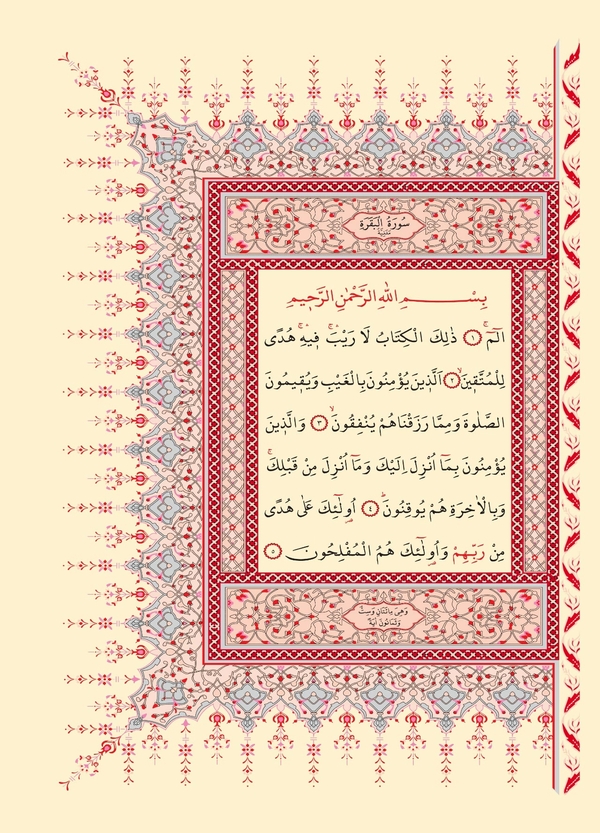 سُورَةُ الْبَقَرَةِ
مَدَنِيَّة
بِسْمِ اللّٰهِ الرَّحْمٰنِ الرَّحٖيمِ
الٓمٓۚ ﴿١﴾ ذٰلِكَ الْكِتَابُ لَا رَيْبَۚ فٖيهِۚ هُدًى
لِلْمُتَّقٖينَۙ ﴿٢﴾ اَلَّذٖينَ يُؤْمِنُونَ بِالْغَيْبِ وَيُقٖيمُونَ
الصَّلٰوةَ وَمِمَّا رَزَقْنَاهُمْ يُنْفِقُونَۙ ﴿٣﴾ وَالَّذٖينَ
يُؤْمِنُونَ بِمَٓا اُنْزِلَ اِلَيْكَ وَمَٓا اُنْزِلَ مِنْ قَبْلِكَۚ
وَبِالْاٰخِرَةِ هُمْ يُوقِنُونَؕ ﴿٤﴾ اُو۬لٰٓئِكَ عَلٰى هُدًى
مِنْ رَبِّهِمْ وَاُو۬لٰٓئِكَ هُمُ الْمُفْلِحُونَ ﴿٥﴾
وَهِيَ مِائَتَانِ وَسِتٌّ
وَثَمَانُونَ اٰيَةً